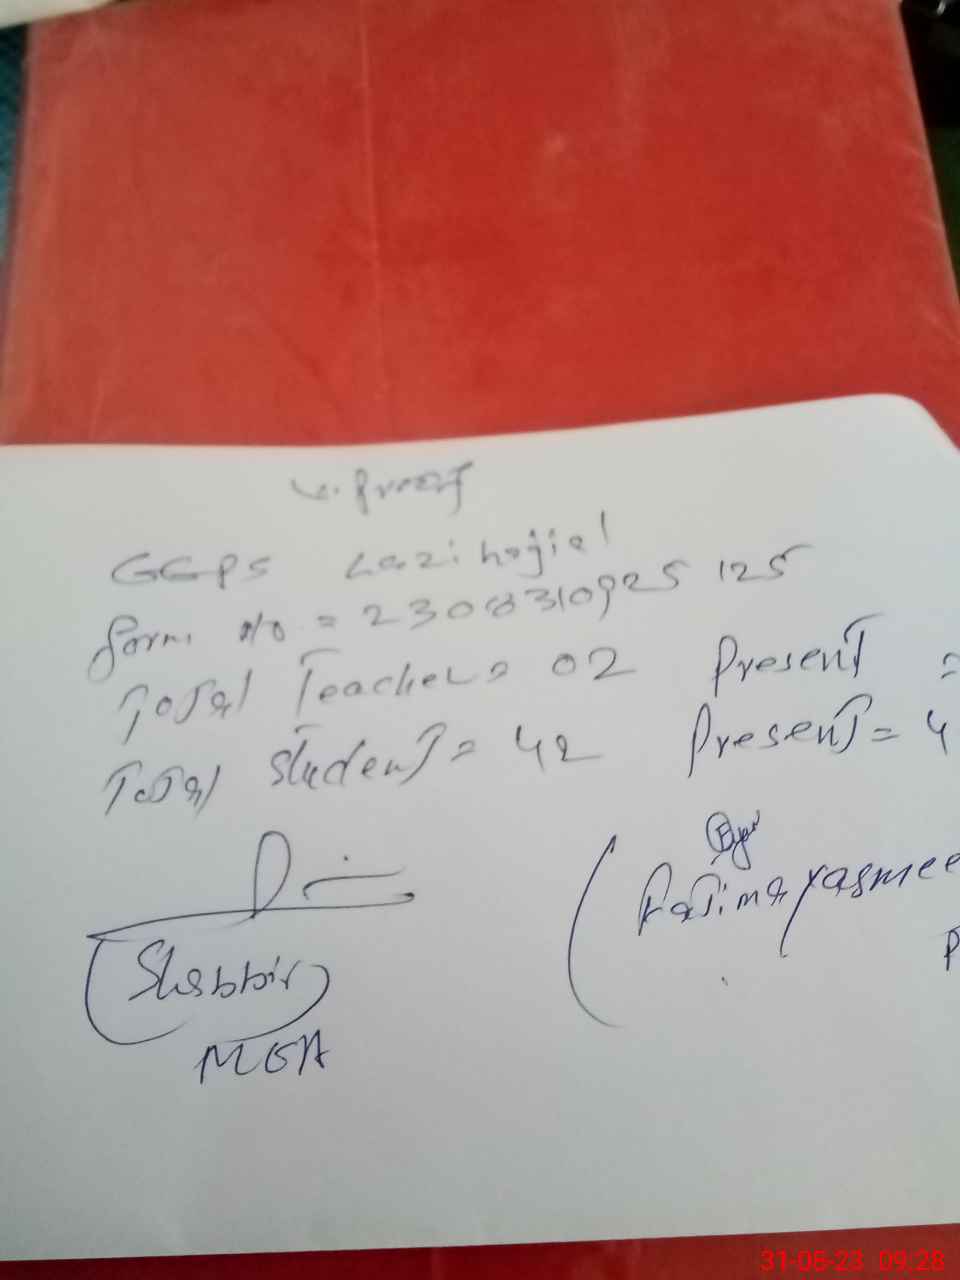 v. Proof
GGPS Lazi hojial
form no = 2308310925125
Total Teacher = 02 Present =
Total Student = 42 Present = 4
(Shabbir)
MEA
(Fatima Yasmee
P
31-08-23 09:28